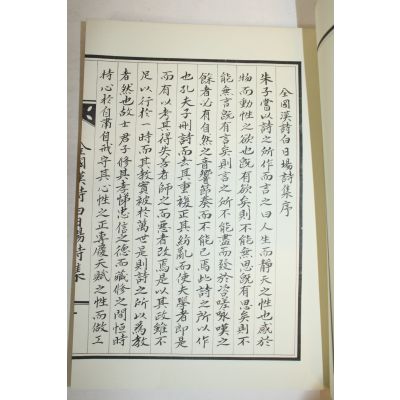 全國漢詩白日場詩集序
朱子嘗以詩之所作而言之曰人生而靜天之性也感於
物而動性之欲也旣有欲矣則不能無思旣有思矣則不
能無言旣有言矣則言之所不能盡而發於咨嗟咏嘆之
餘者必有自然之音響節奏而不能已焉此詩之所以作
也孔夫子刪詩而去其重複正其紛亂而使夫學者卽是
而有以考其得失善者師之而惡者改焉是以其政雖不
足以行於一時而其敎實被於萬世是則詩之所以爲敎
者然也故士君子修其孝悌忠信之德而藏修之間恒時
持心於自肅自戒守其心性之正專慶天賦之性而做工
全國漢詩白日場詩集